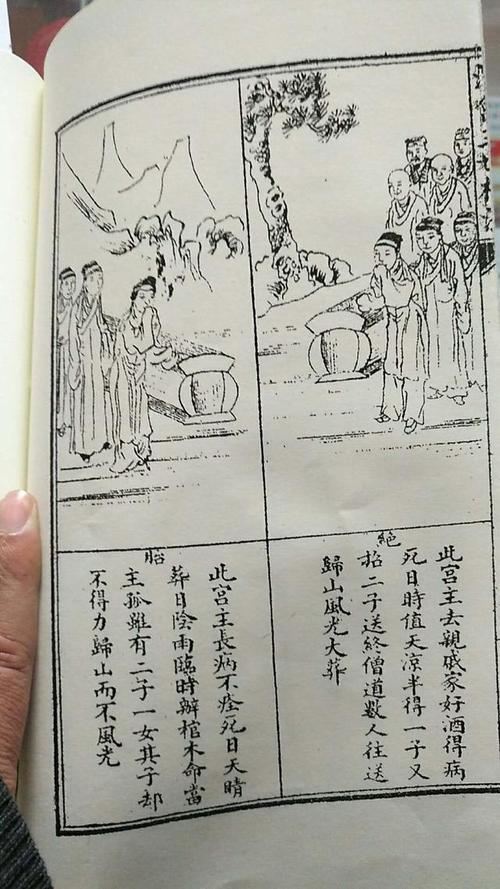 絕
此宫主去親戚家好酒得病
死日時值天凉半得一子又
招二子送終僧道数人往送
歸山風光大葬
胎
此宫主長病不痊死日天晴
葬日陰雨臨時辦棺木命當
主孤雖有二子一女其子却
不得力歸山而不風光